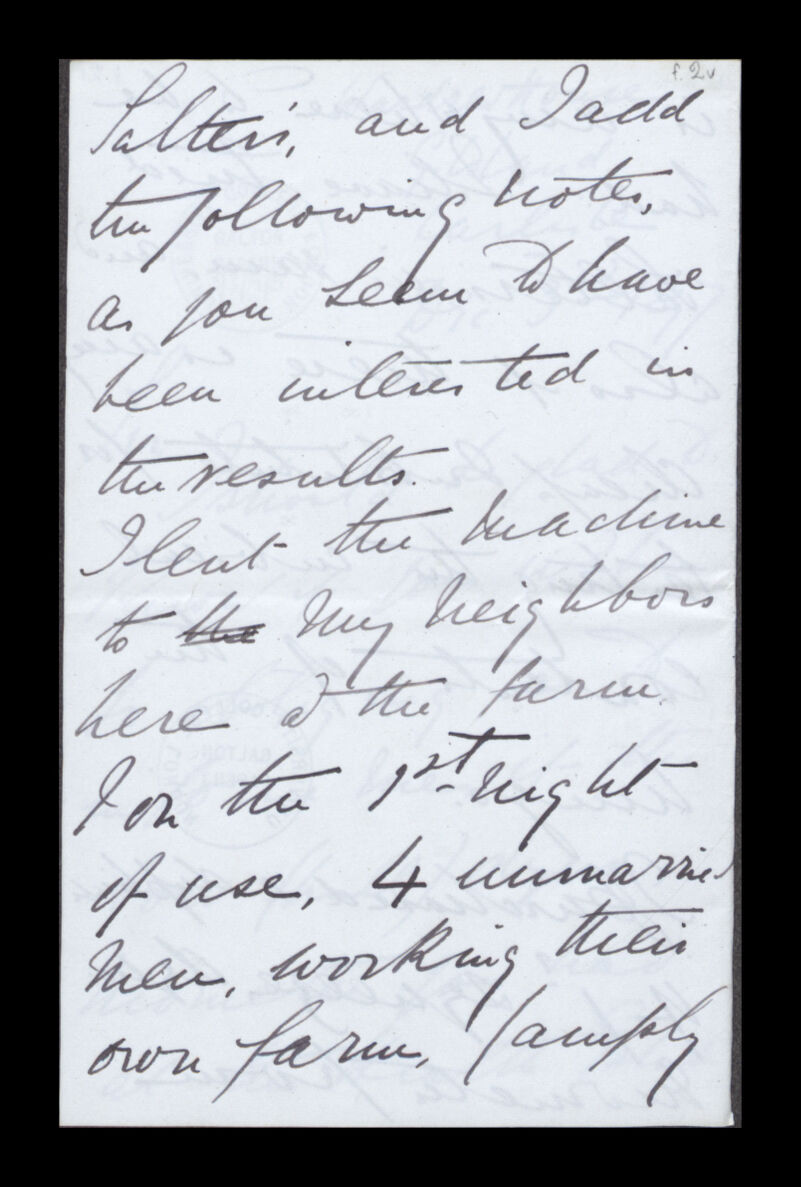 f. 2v
Salter's, and I add
the following notes,
as you seem to have
been interested in
the results.
I lent the machine
to the my neighbors
here at the farm.
& on the 1st night
of use, 4 unmarried
men, working their
own farm, (amply